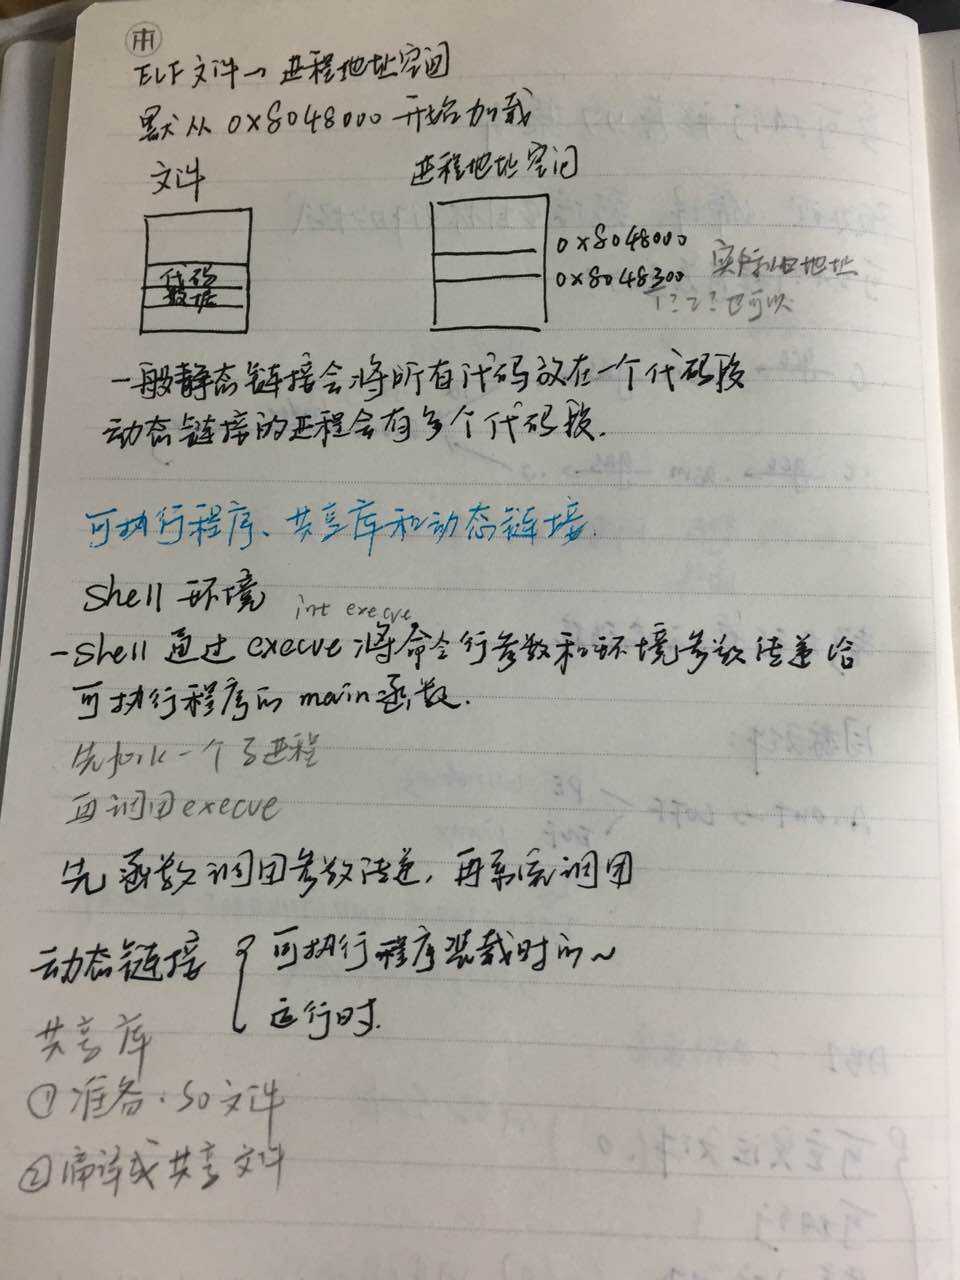 ELF文件→进程地址空间
默认从0x8048000开始加载
文件
进程地址空间
代码
数据
0x8048000
0x8048300 实际入口地址
1?2?也可以
一般静态链接会将所有代码放在一个代码段
动态链接的进程会有多个代码段.
可执行程序、共享库和动态链接.
Shell环境
int execve
-Shell通过execve将命令行参数和环境参数传递给
可执行程序的main函数.
先fork一个子进程
再调用execve
先函数调用参数传递,再系统调用
动态链接
可执行程序装载时的~
运行时.
共享库
①准备.so文件
②编译成共享文件